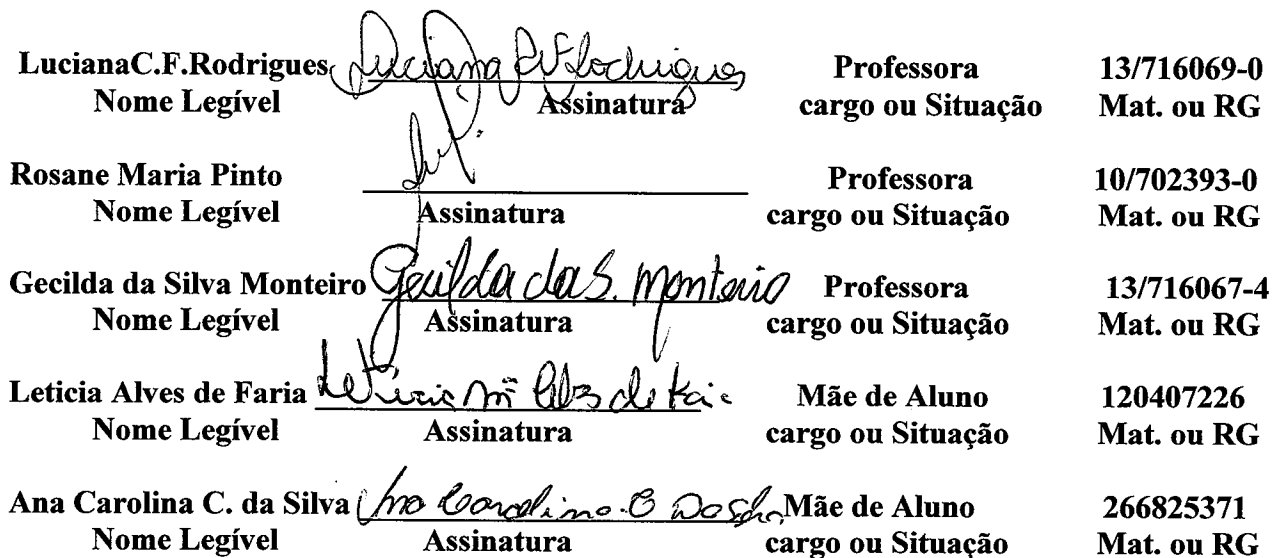 LucianaC.F.Rodrigues Luciana C F Rodrigues Professora 13/716069-0
Nome Legível Assinatura cargo ou Situação Mat. ou RG
Rosane Maria Pinto Professora 10/702393-0
Nome Legível Assinatura cargo ou Situação Mat. ou RG
Gecilda da Silva Monteiro Gecilda da S. Monteiro Professora 13/716067-4
Nome Legível Assinatura cargo ou Situação Mat. ou RG
Leticia Alves de Faria Mãe de Aluno 120407226
Nome Legível Assinatura cargo ou Situação Mat. ou RG
Ana Carolina C. da Silva Ana Carolina C Da Silva Mãe de Aluno 266825371
Nome Legível Assinatura cargo ou Situação Mat. ou RG